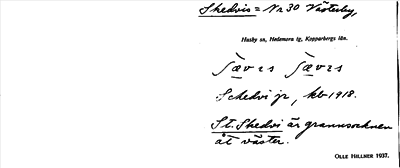 Skedvis = Nr 30 Västerby,
Husby sn, Hedemora tg, Kopparbergs län.
Schedvi jp, kb 1918.
St. Skedvi är grannsocknen
åt väster.
OLLE HILLNER 1937.